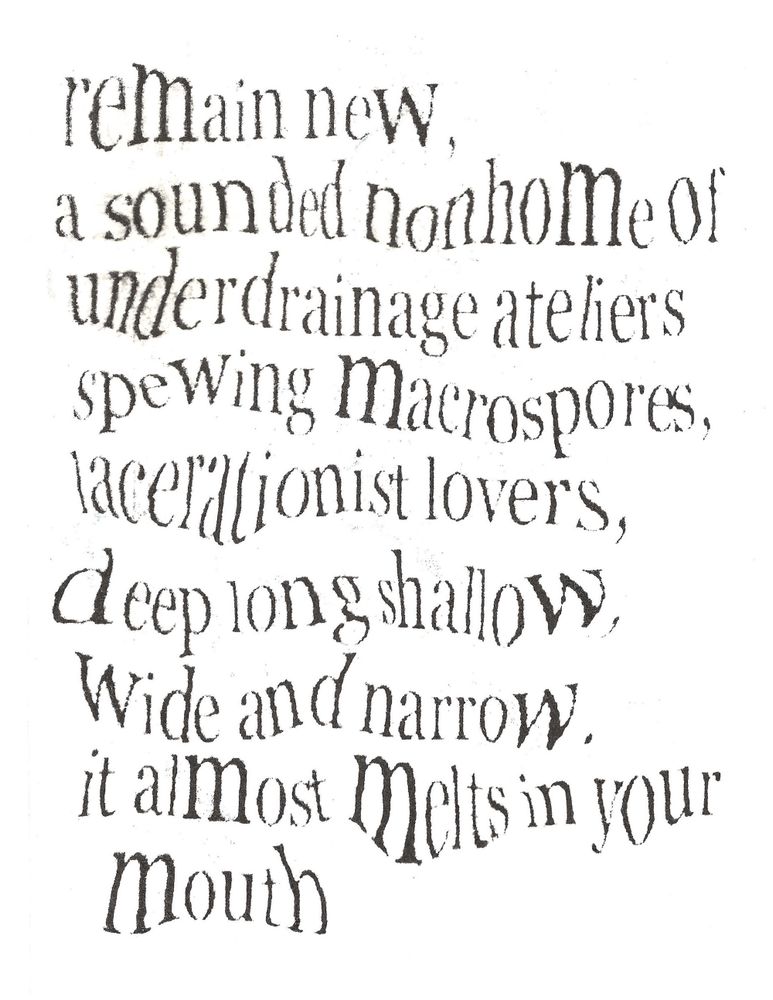 remain new,
a sounded nonhome of
underdrainage ateliers
spewing macrospores,
lacerationist lovers,
deep long shallow,
Wide and narrow.
it almost melts in your
mouth